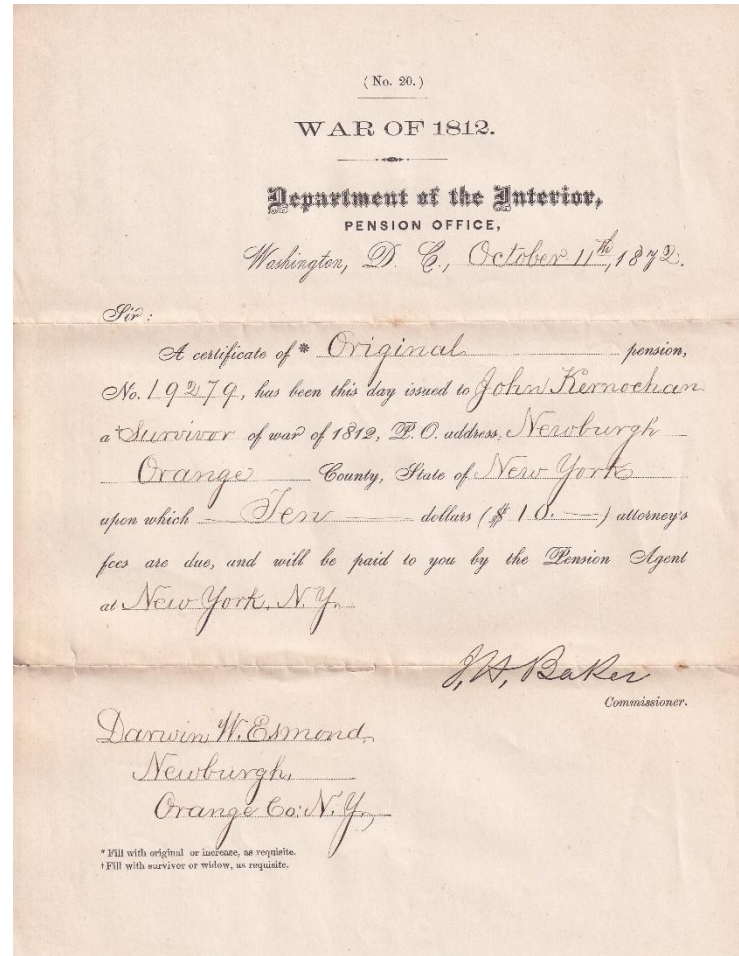 (No. 20.)
WAR OF 1812.
Department of the Interior,
PENSION OFFICE,
Washington, D. C., October 11th, 1872.
Sir:
A certificate of * Original pension,
No. 19279, has been this day issued to John Kernochan
a † Survivor of war of 1812, P. O. address, Newburgh
Orange County, State of New York
upon which — Ten — dollars ($ 10. —) attorney's
fees are due, and will be paid to you by the Pension Agent
at New York, N.Y.
J. H. Baker
Commissioner.
Darwin W. Esmond,
Newburgh,
Orange Co: N.Y.,
* Fill with original or increase, as requisite.
† Fill with survivor or widow, as requisite.